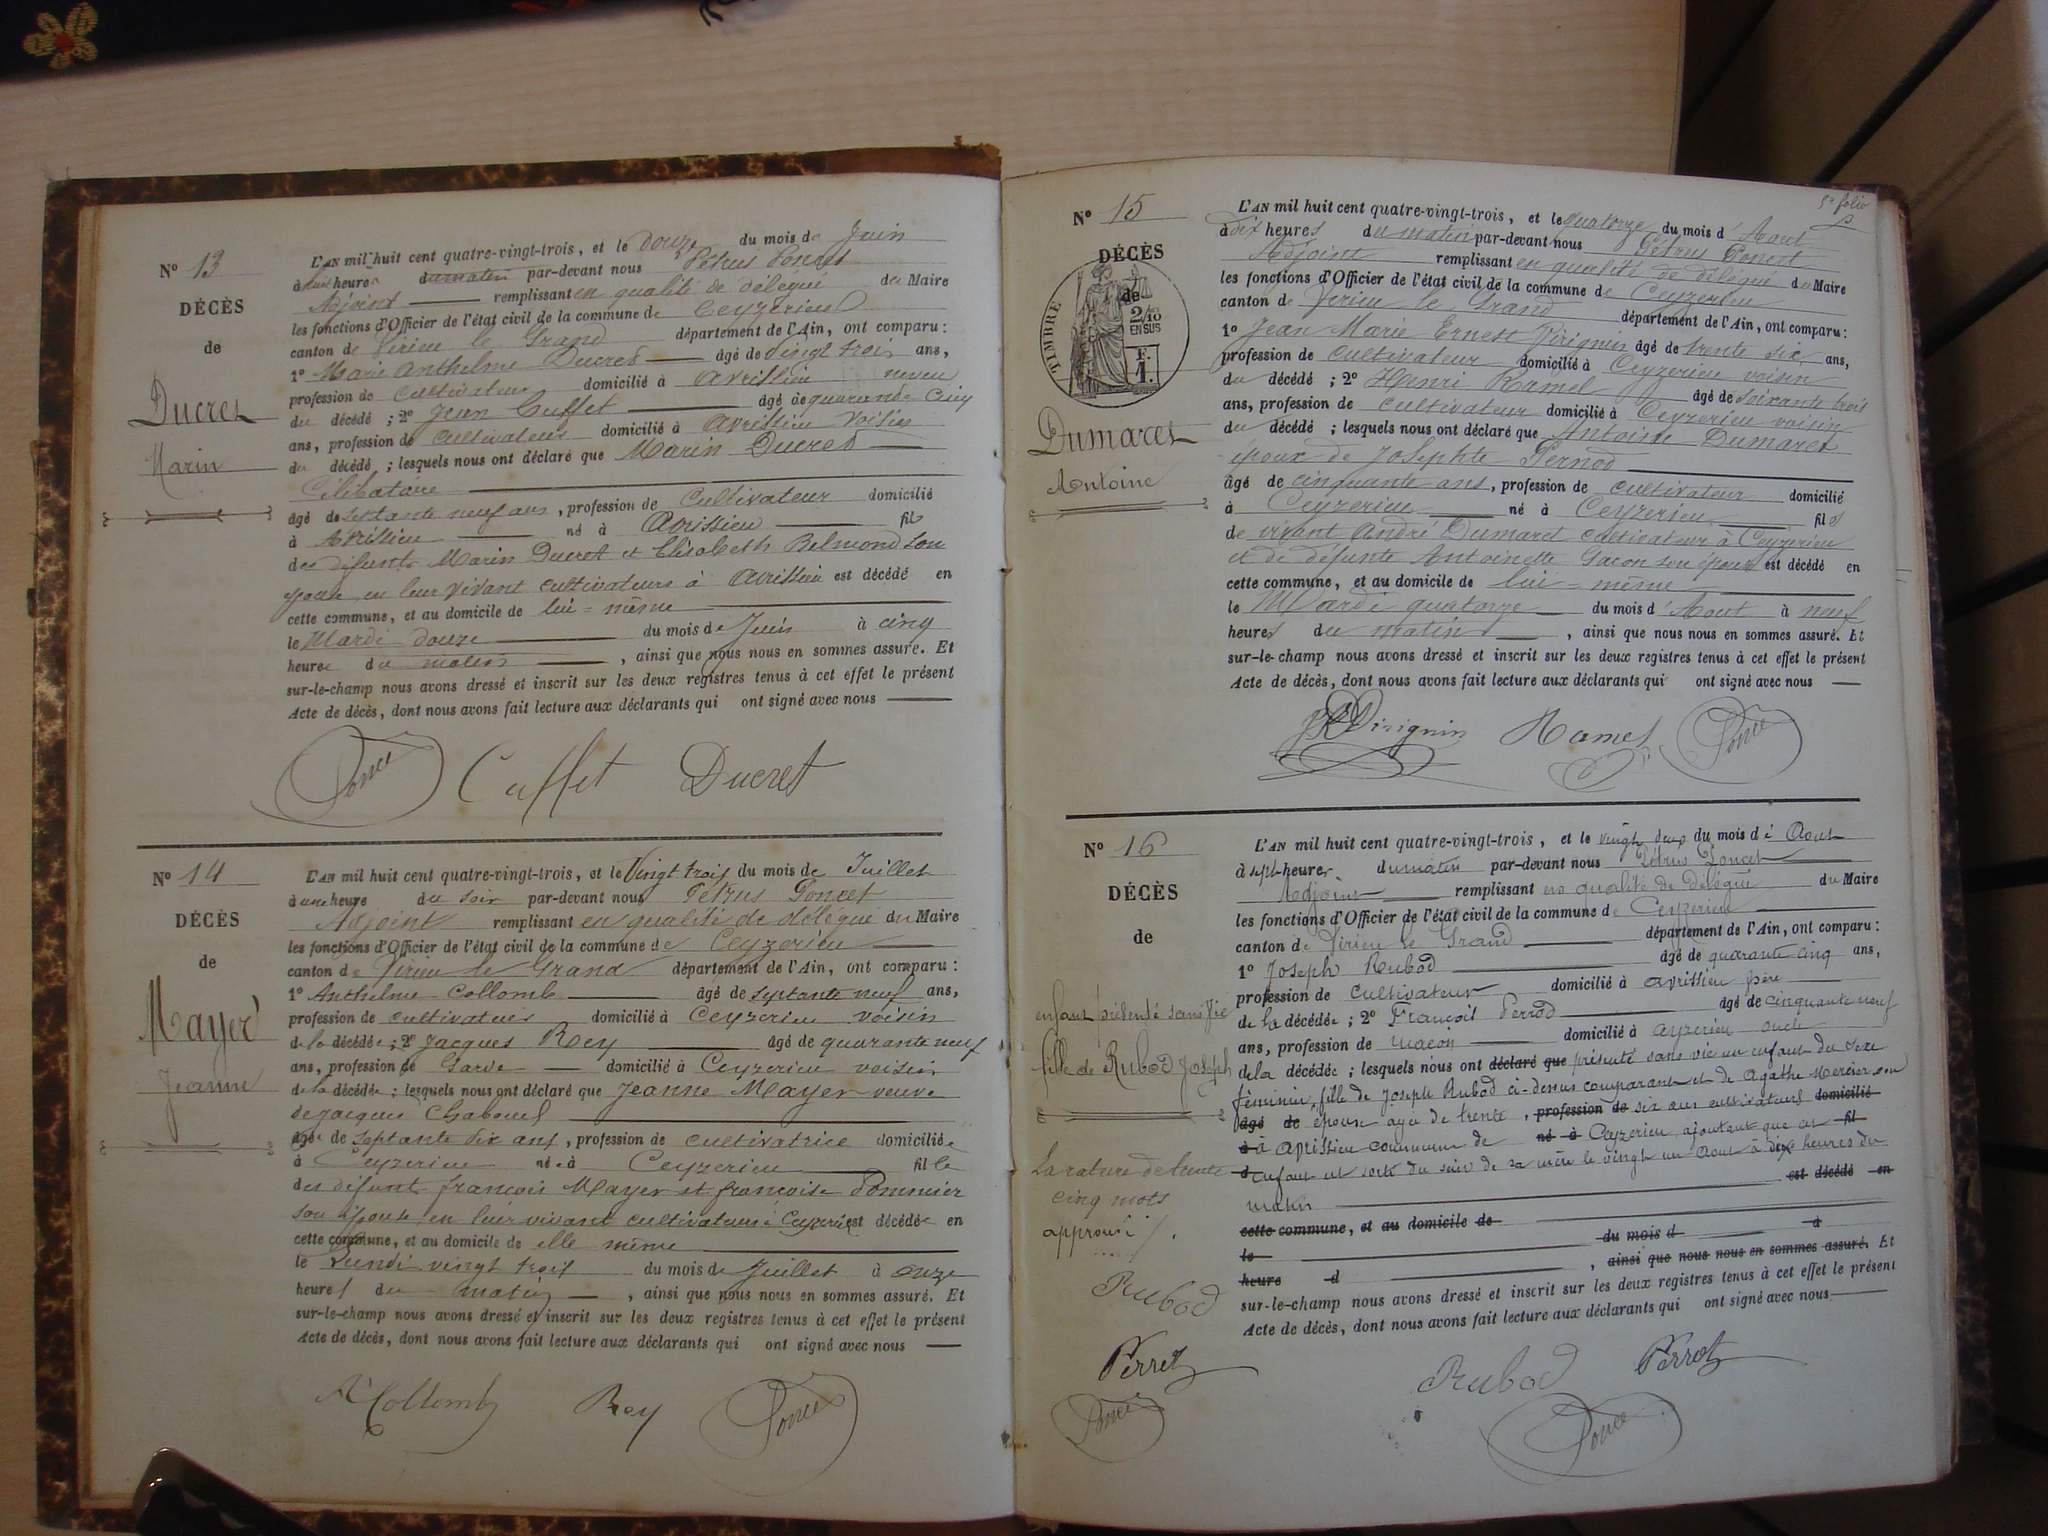 N° 13
DÉCÈS
de
Ducret
Marin
L'AN mil huit cent quatre-vingt-trois, et le douze du mois de Juin
à heures du matin par-devant nous Pétrus Poncet
Adjoint remplissant en qualité de délégué du Maire
les fonctions d'Officier de l'état civil de la commune de Ceyzerieu
canton de Virieu le Grand département de l'Ain, ont comparu:
1° Marie Anthelme Ducret âgé de vingt trois ans,
profession de cultivateur domicilié à Avrissieu neveu
du décédé; 2° Jean Cuffet âgé de quarante cinq
ans, profession de cultivateur domicilié à Avrissieu voisin
du décédé; lesquels nous ont déclaré que Marin Ducret
Célibataire
âgé de septante neuf ans, profession de Cultivateur domicilié
à Avrissieu né à Avrissieu fils
des défunts Marin Ducret et Elisabeth Belmond son
épouse en leur vivant cultivateurs à Avrissieu est décédé en
cette commune, et au domicile de lui=même
le Mardi douze du mois de Juin à cinq
heures du matin, ainsi que nous nous en sommes assuré. Et
sur-le-champ nous avons dressé et inscrit sur les deux registres tenus à cet effet le présent
Acte de décès, dont nous avons fait lecture aux déclarants qui ont signé avec nous
Poncet Cuffet Ducret
N° 14
DÉCÈS
de
Mayer
Jeanne
L'AN mil huit cent quatre-vingt-trois, et le Vingt trois du mois de Juillet
à une heure du soir par-devant nous Pétrus Poncet
Adjoint remplissant en qualité de délégué du Maire
les fonctions d'Officier de l'état civil de la commune de Ceyzerieu
canton de Virieu le Grand département de l'Ain, ont comparu:
1° Anthelme Collomb âgé de septante neuf ans,
profession de cultivateur domicilié à Ceyzerieu voisin
de la décédée; 2° Jacques Rey âgé de quarante neuf
ans, profession de Garde domicilié à Ceyzerieu voisin
de la décédée; lesquels nous ont déclaré que Jeanne Mayer veuve
de Jacques
âgée de septante six ans, profession de cultivatrice domiciliée
à Ceyzerieu née à Ceyzerieu fille
des défunts françois Mayer et françoise Pommier
son épouse en leur vivant cultivateurs à Ceyzerieu est décédée en
cette commune, et au domicile de elle même
le Lundi vingt trois du mois de Juillet à onze
heures du matin, ainsi que nous nous en sommes assuré. Et
sur-le-champ nous avons dressé et inscrit sur les deux registres tenus à cet effet le présent
Acte de décès, dont nous avons fait lecture aux déclarants qui ont signé avec nous
A Collomb Rey Poncet
5e folio
N° 15
DÉCÈS
de
TIMBRE
2/10
EN SUS
F.
1.
Dumaret
Antoine
L'AN mil huit cent quatre-vingt-trois, et le quatorze du mois d'Aout
à dix heures du matin par-devant nous Pétrus Poncet
Adjoint remplissant en qualité de délégué du Maire
les fonctions d'Officier de l'état civil de la commune de Ceyzerieu
canton de Virieu le Grand département de l'Ain, ont comparu:
1° Jean Marie Ernest Virignin âgé de trente six ans,
profession de cultivateur domicilié à Ceyzerieu voisin
du décédé; 2° Henri Ramel âgé de soixante trois
ans, profession de cultivateur domicilié à Ceyzerieu voisin
du décédé; lesquels nous ont déclaré que Antoine Dumaret
époux de Josephte Pernod
âgé de cinquante ans, profession de cultivateur domicilié
à Ceyzerieu né à Ceyzerieu fils
de vivant André Dumaret cultivateur à Ceyzerieu
et de défunte Antoinette Gacon son épouse est décédé en
cette commune, et au domicile de lui=même
le Mardi quatorze du mois d'Aout à neuf
heures du matin, ainsi que nous nous en sommes assuré. Et
sur-le-champ nous avons dressé et inscrit sur les deux registres tenus à cet effet le présent
Acte de décès, dont nous avons fait lecture aux déclarants qui ont signé avec nous
Virignin Ramel Poncet
N° 16
DÉCÈS
de
enfant présenté sans vie
fille de Rubod Joseph
La rature de trente
cinq mots
approuvé
Rubod
Perret
Poncet
L'AN mil huit cent quatre-vingt-trois, et le vingt deux du mois d'Aout
à sept heures du matin par-devant nous Pétrus Poncet
Adjoint remplissant en qualité de délégué du Maire
les fonctions d'Officier de l'état civil de la commune de Ceyzerieu
canton de Virieu le Grand département de l'Ain, ont comparu:
1° Joseph Rubod âgé de quarante cinq ans,
profession de cultivateur domicilié à avrissieu père
de la décédée; 2° François Perrod âgé de cinquante neuf
ans, profession de maçon domicilié à oncle
de la décédée; lesquels nous ont déclaré que présenté sans vie un enfant du sexe
féminin, fille de Joseph Rubod ci-dessus comparant et de Agathe Mercier son
âgé de épouse agée de trente, profession de six ans cultivateurs domicilié
à à Avrissieu commune de né à Ceyzerieu, ajoutant que cet fil
d enfant est sorti du sein de sa mère le vingt un Aout à dix heures du
matin est décédé en
cette commune, et au domicile de
le du mois d à
heure d, ainsi que nous nous en sommes assuré. Et
sur-le-champ nous avons dressé et inscrit sur les deux registres tenus à cet effet le présent
Acte de décès, dont nous avons fait lecture aux déclarants qui ont signé avec nous
Rubod Perrot
Poncet